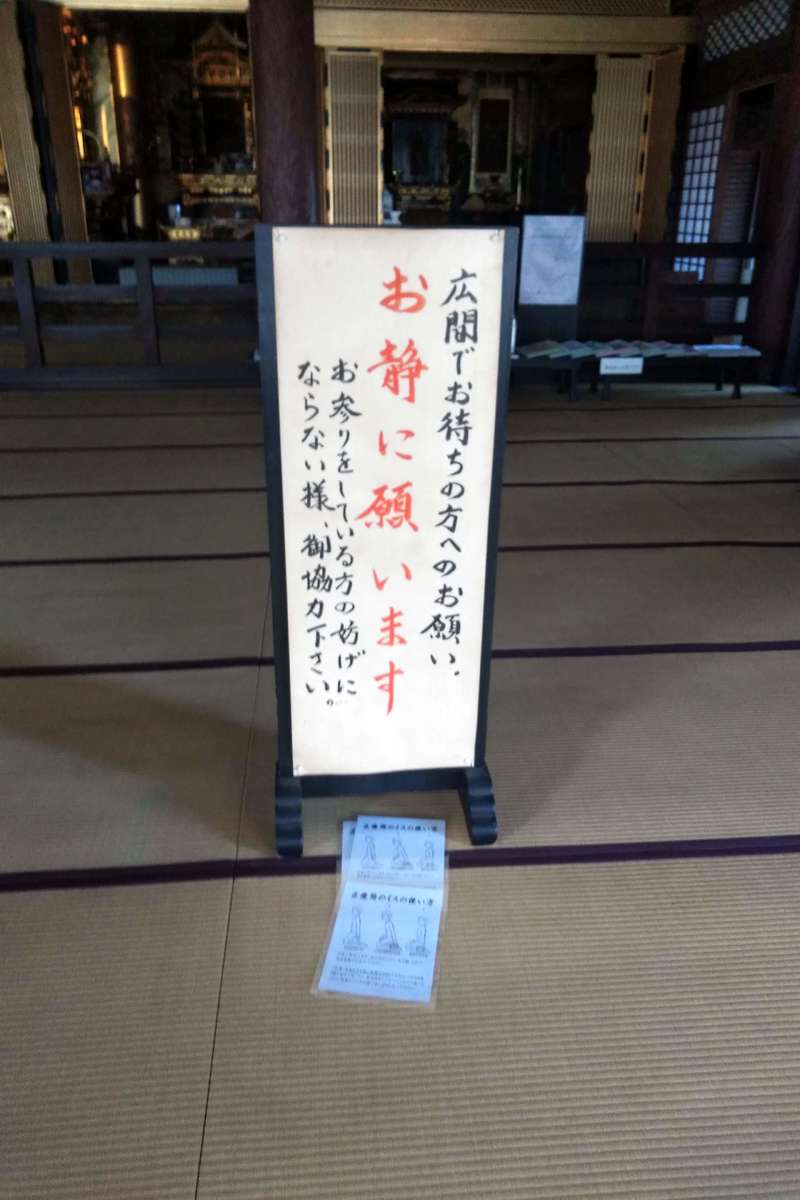 広間でお待ちの方へのお願い.
お静に願います
お参りをしている方の妨げに
ならない様、御協力下さい。
正座用のイスの使い方
正座用のイスの使い方